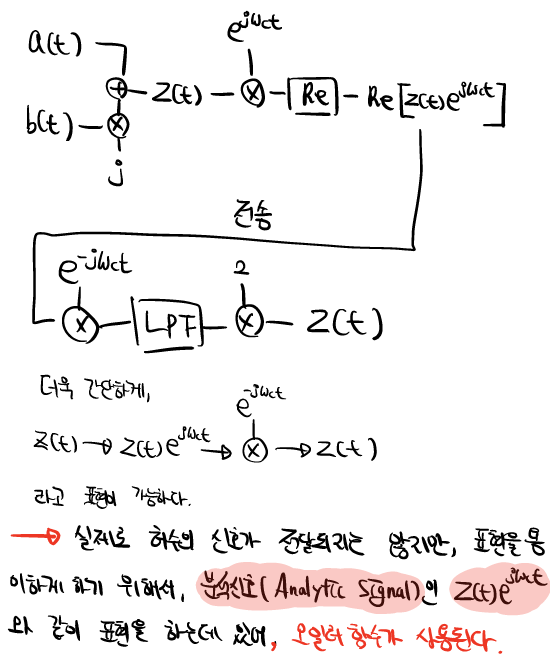 a(t)
e^jωct
+ Z(t) × Re Re[Z(t)e^jωct]
b(t) ×
j
전송
e^-jωct 2
× LPF × Z(t)
더욱 간단하게,
e^-jωct
Z(t) → Z(t)e^jωct → × → Z(t)
라고 표현이 가능하다.
→ 실제로 허수의 신호가 전달되지는 않지만, 표현을 용
이하게 하기 위해서, 분석신호(Analytic Signal)인 Z(t)e^jωct
와 같이 표현을 하는데 있어, 오일러 함수가 사용된다.